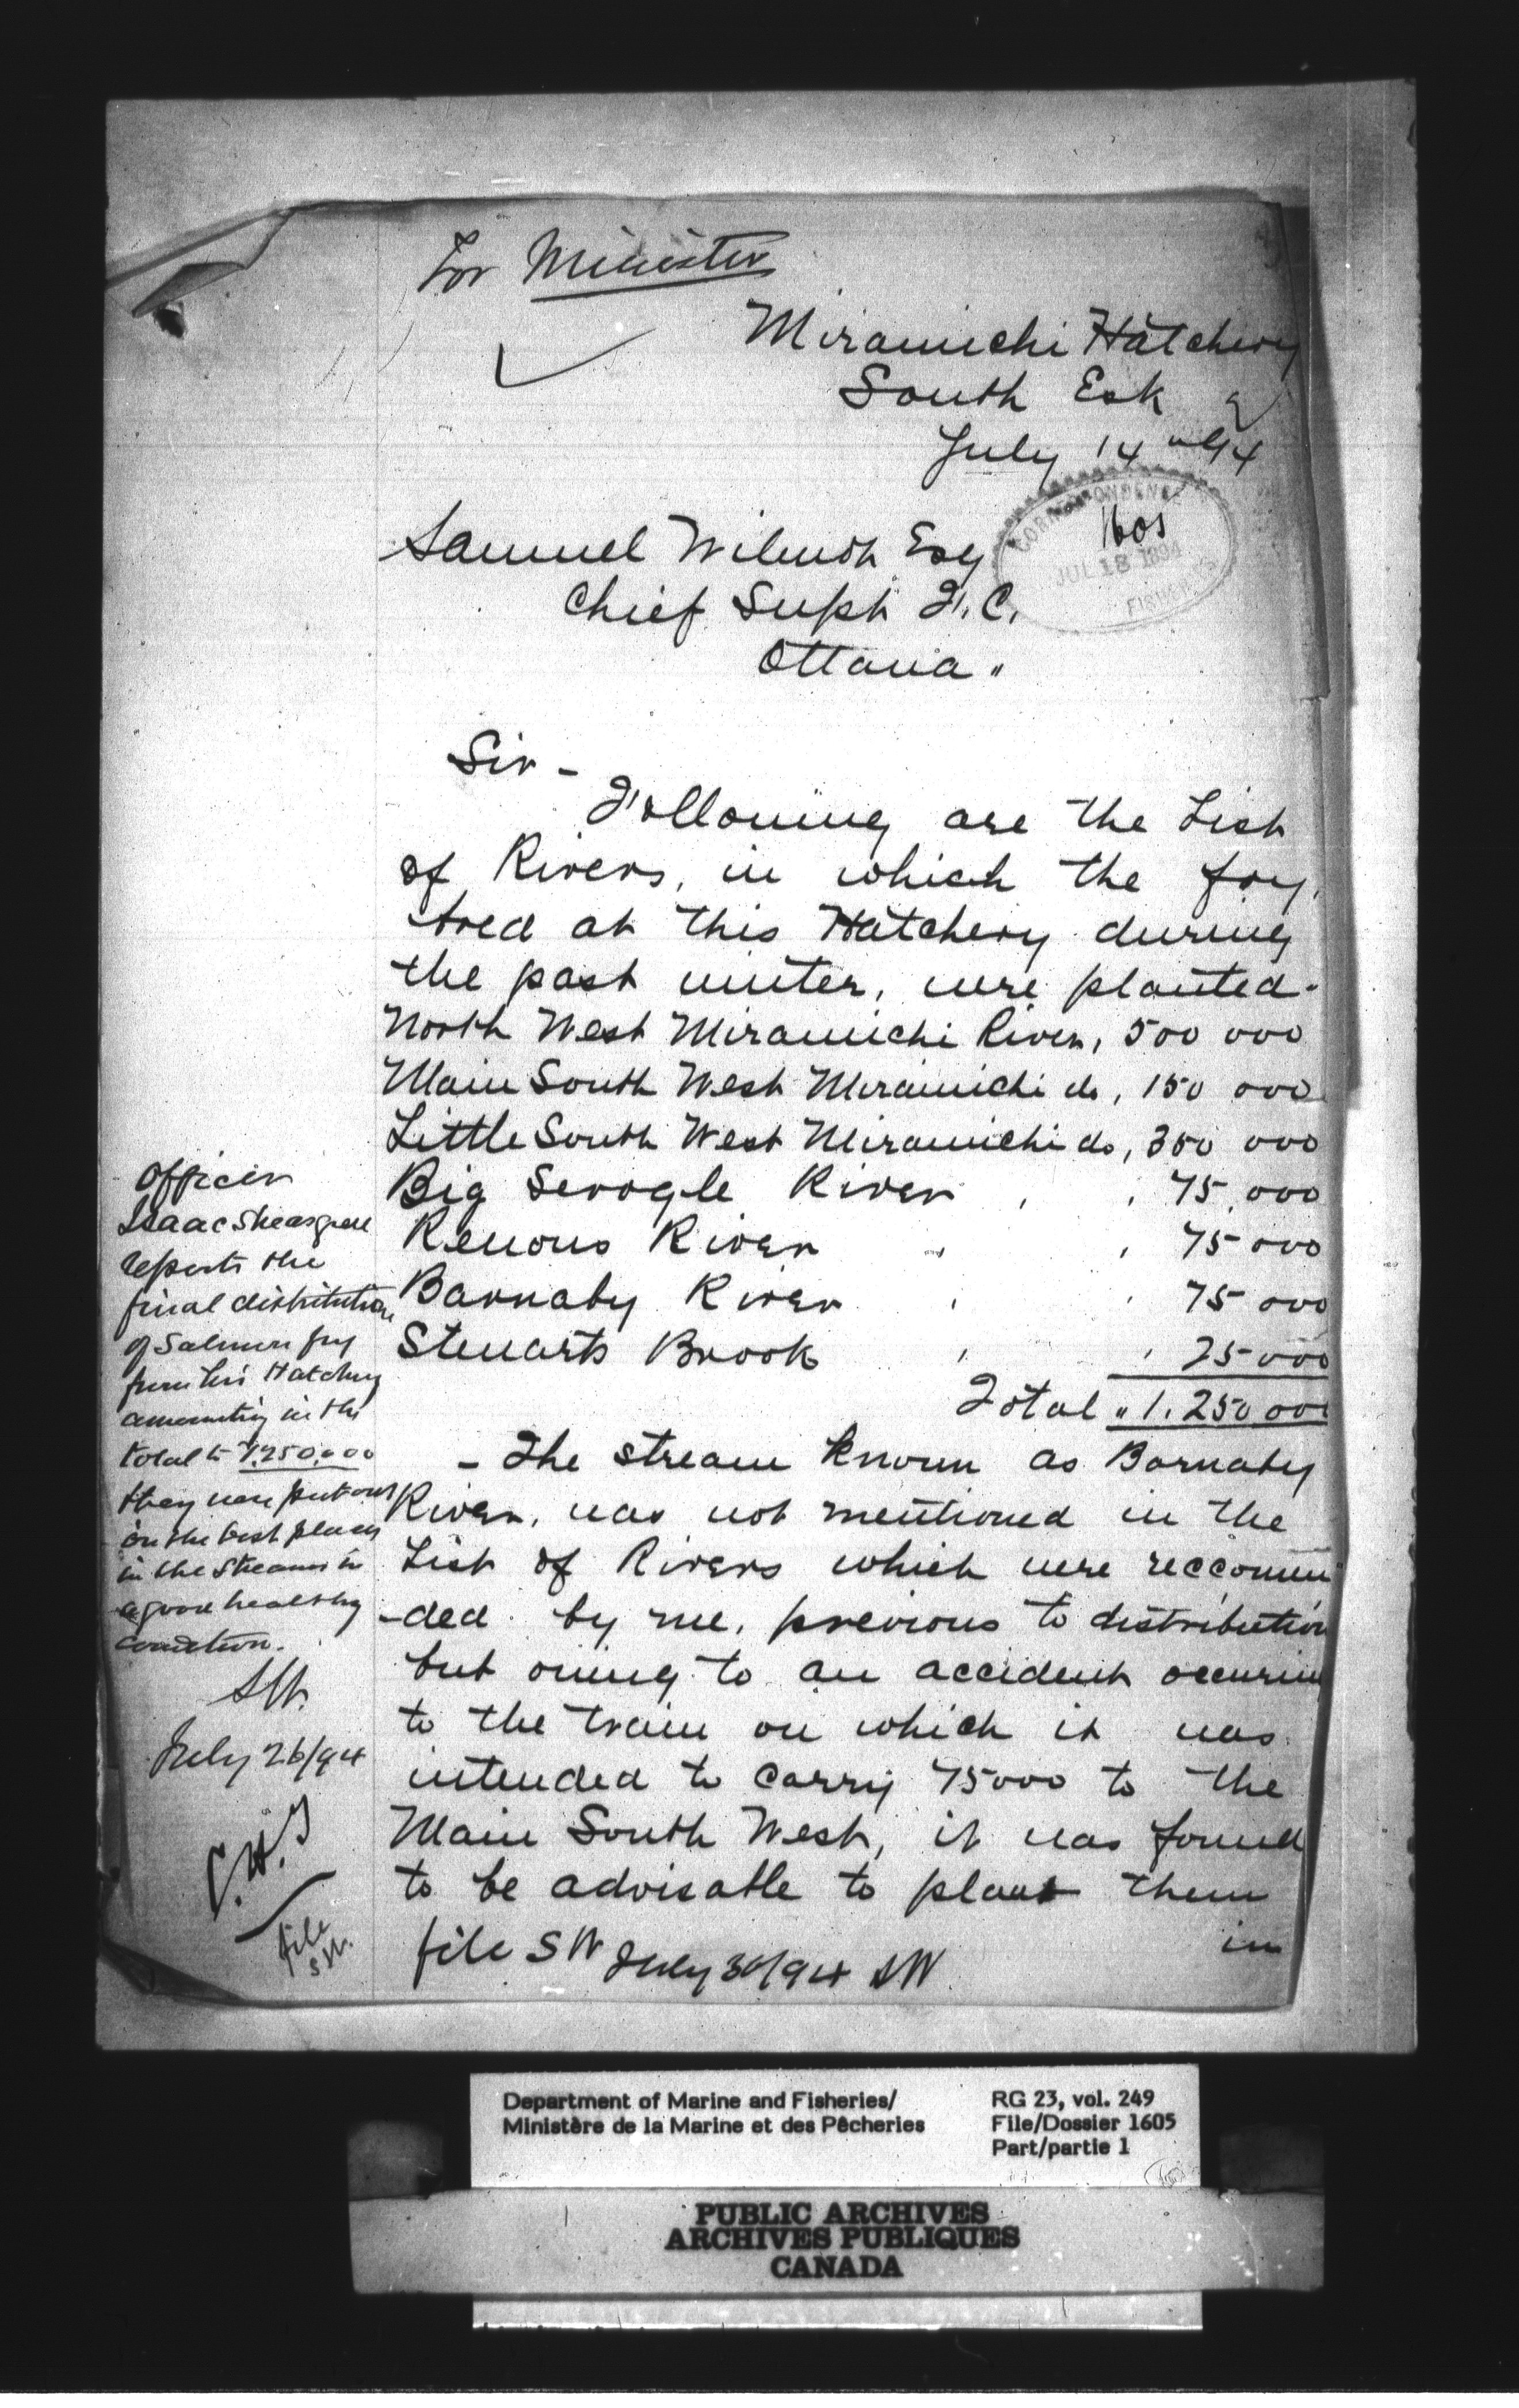 For Minister
Miramichi Hatchery
South Esk
July 14th 94
CORRESPONDENCE
1605
JUL 18 1894
FISHERIES
Samuel Wilmot Esq
Chief Supt F. C.
Ottawa "
Sir -
Following are the List
of Rivers, in which the fry,
bred at this Hatchery during
the past winter, were planted-
North West Miramichi River, 500 000
Main South West Miramichi do, 150 000
Little South West Miramichi do, 350 000
Big Sevogle River , , 75,000
Renous River " , 75 000
Barnaby River , , 75 000
Stewarts Brook , , 25 000
Total " 1.250 000
- The stream known as Barnaby
River, was not mentioned in the
List of Rivers which were reccomen
-ded by me, previous to distribution
but owing to an accident occuring
to the train on which it was
intended to carry 75000 to the
Main South West, it was found
to be advisable to plant them
in
Officer
Isaac Sheasgreen
reports the
final distribution
of Salmon fry
from this Hatchery
amounting in the
total to 1,250,000
they were put out
in the best places
in the streams in
a good healthy
condition.
SW.
July 26/94
C.H.T
file
SW.
file SW July 30/94 SW
Department of Marine and Fisheries/
Ministère de la Marine et des Pêcheries
RG 23, vol. 249
File/Dossier 1605
Part/partie 1
PUBLIC ARCHIVES
ARCHIVES PUBLIQUES
CANADA